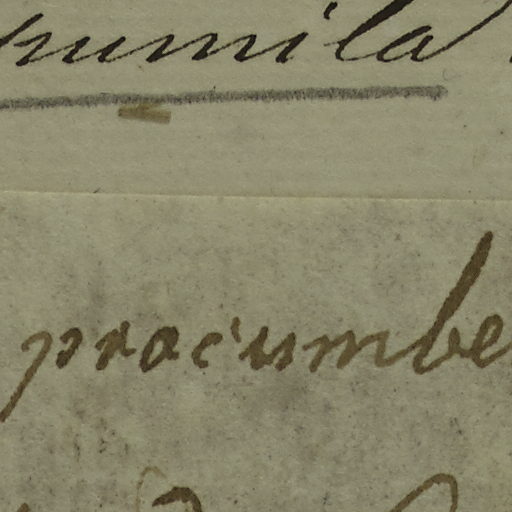 pumila
procumbe